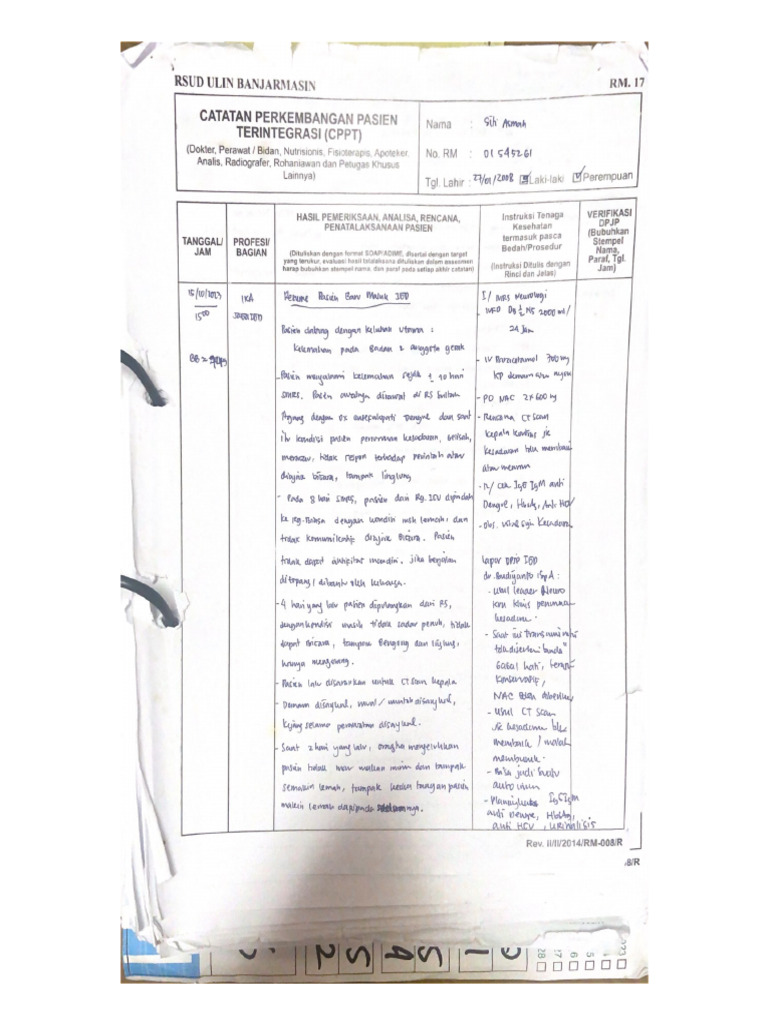 RSUD ULIN BANJARMASIN
RM. 17
CATATAN PERKEMBANGAN PASIEN
TERINTEGRASI (CPPT)
(Dokter, Perawat / Bidan, Nutrisionis, Fisioterapis, Apoteker,
Analis, Radiografer, Rohaniawan dan Petugas Khusus
Lainnya)
Nama : Siti Asmah
No. RM : 01545261
Tgl. Lahir : 27/01/2008 Laki-laki Perempuan
TANGGAL/
JAM
PROFESI/
BAGIAN
HASIL PEMERIKSAAN, ANALISA, RENCANA,
PENATALAKSANAAN PASIEN
(Dituliskan dengan format SOAP/ADIME, disertai dengan target
yang terukur, evaluasi hasil tatalaksana dituliskan dalam assesmen
harap bubuhkan stempel nama, dan paraf pada setiap akhir catatan)
Instruksi Tenaga
Kesehatan
termasuk pasca
Bedah/Prosedur
(Instruksi Ditulis dengan
Rinci dan Jelas)
VERIFIKASI
DPJP
(Bubuhkan
Stempel
Nama,
Paraf, Tgl.
Jam)
15/10/2023
1500
BB =
IKA
IGD
Resume Pasien Baru Masuk IGD
Pasien datang dengan keluhan utama :
kelemahan pada badan 2 anggota gerak
- Pasien mengalami kelemahan sejak ± 10 hari
SMRS. Pasien awalnya dirawat di RS
dengan Dx ensefalopati Dengue dan saat
itu kondisi pasien penurunan kesadaran, gelisah,
meracau, tidak respon terhadap perintah atau
diajak bicara, tampak linglung
- Pada 8 hari SMRS, pasien dari Rg. ICU dipindah
ke rg. dengan kondisi msh lemah, dan
tidak komunikatif diajak bicara. Pasien
tidak dapat aktifitas mandiri, jika berjalan
ditopang / dibantu oleh keluarga.
- 4 hari yang lalu pasien dipulangkan dari RS,
dengan kondisi masih tidak sadar penuh, tidak
dapat bicara, tampak bengong dan
hanya mengerang.
- Pasien lalu disarankan untuk CT Scan kepala
- Demam disangkal, mual / muntah disangkal,
kejang selama perawatan disangkal.
- Saat 2 hari yang lalu, orangtua mengeluhkan
pasien tidak mau makan minum dan tampak
semakin lemah, tampak kedua tangan pasien
makin lemah daripada
I/ MRS Neurologi
IVFD D5 ½ NS 2000 ml/
24 Jam
- IV Paracetamol 300 mg
KP demam atau nyeri
- PO NAC 2x600 mg
- Rencana CT Scan
kepala kontras jk
kesadaran blm membaik
atau menurun
- R/ Cek IgG IgM anti
Dengue, HbsAg, Anti HCV
- Obs. vital sign kesadaran
Lapor DPJP IGD
dr. Budiyanto SpA :
- usul Leader Neuro
krn klinis penurunan
kesadaran.
- Saat ini
tdk disertai tanda"
gagal hati, terapi
konservatif,
NAC diberikan
- usul CT Scan
jk kesadaran blm
membaik / malah
memburuk.
- Bila jadi
autoimun
- IgG IgM
anti Dengue, HbsAg,
anti HCV, Urinalisis
Rev. II/II/2014/RM-008/R
8/R
01 54 52